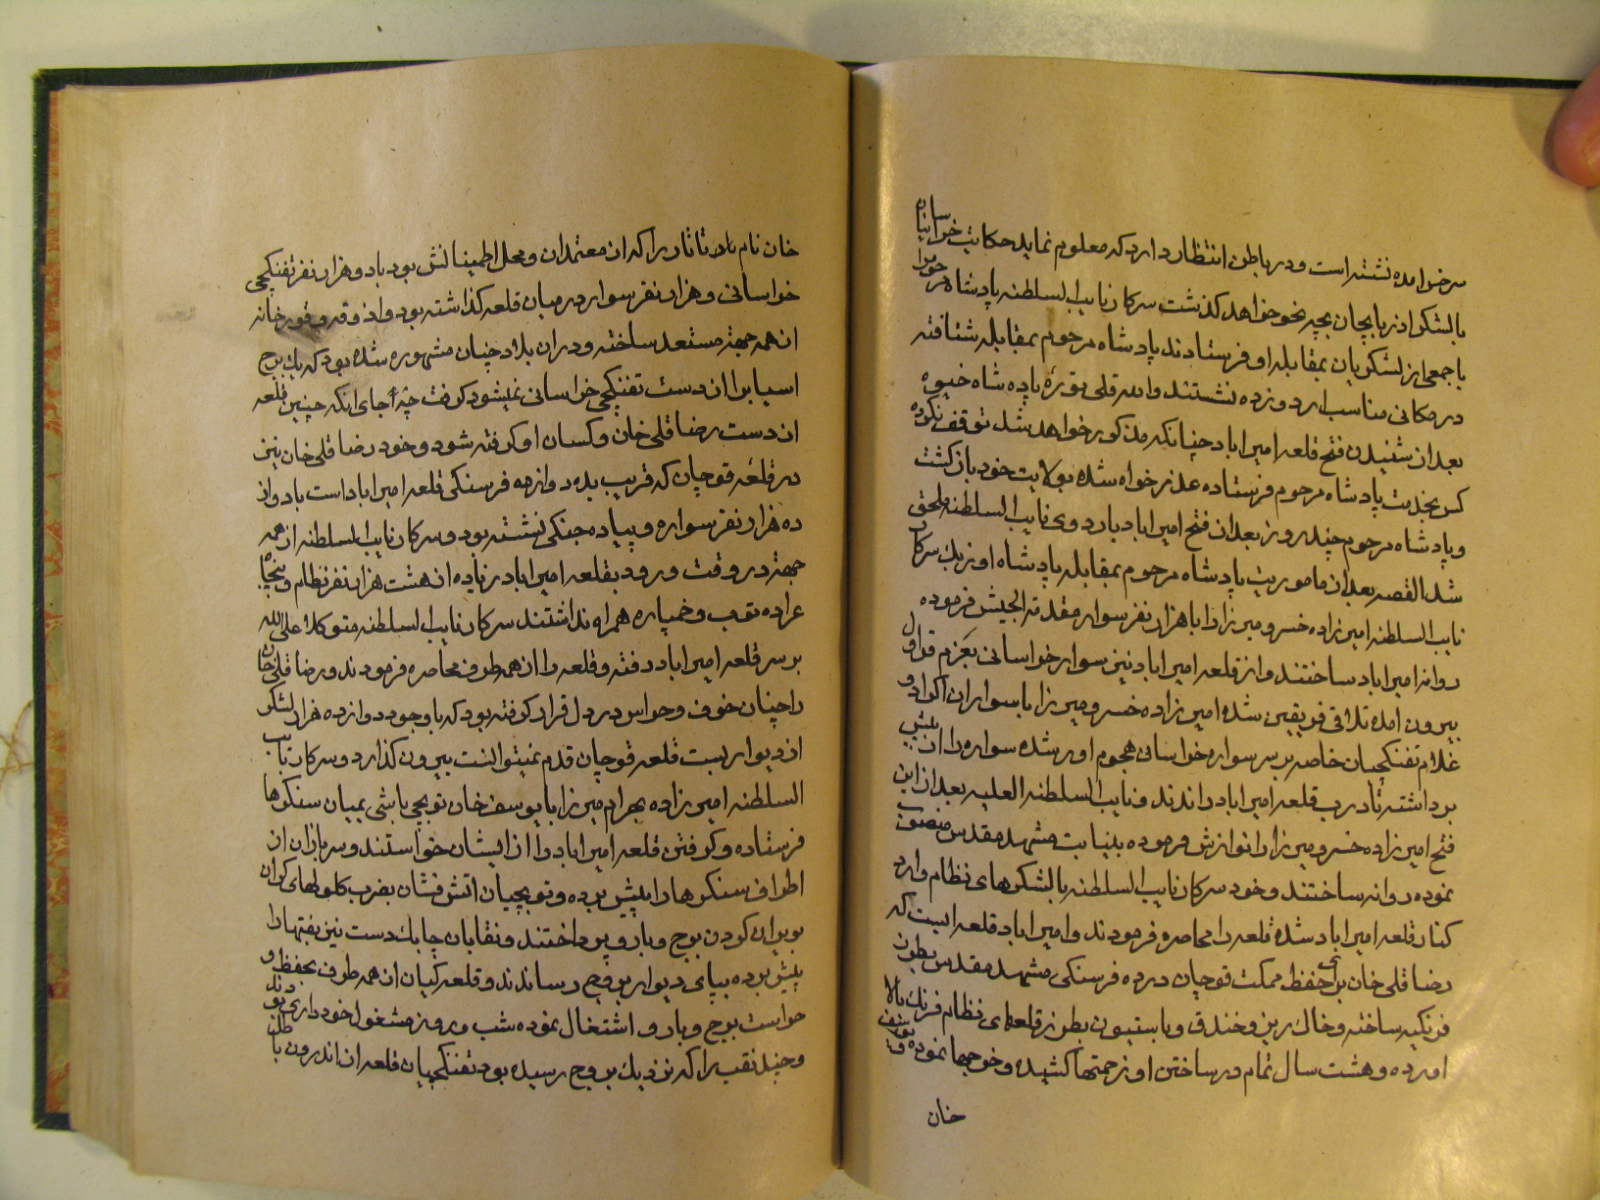 سرخرامده نشسته است و در باطن انتظار دارد که معلوم نماید حکایت خراسانیان
بالشکر اذربایجان بچه نحو خواهد کذشت سرکار نایب السلطنه پادشاه مرحوم را
با جمعی از لشکریان بمقابله او فرستادند پادشاه مرحوم بمقابله شتافته
در مکانی مناسب اردو زده نشستند و الله قلی توره پادشاه خیوه
بعد از شنیدن فتح قلعه امیراباد چنانکه مذکور خواهد شد توقف نکرده
کس بخدمت پادشاه مرحوم فرستاده عذر خواه شده بولایت خود بازکشت
و پادشاه مرحوم چند روز بعد از فتح امیراباد باردوی نایب السلطنه ملحق
شد القصه بعد از ماموریت پادشاه مرحوم بمقابله پادشاه اوزبک سرکار
نایب السلطنه امیرزاده خسرو میرزا را با هزار نفر سوار مقدمة الجیش فرموده
روانه امیراباد ساختند و از قلعه امیراباد نیز سوار خراسانی بعزم قراول
بیرون امده تلاقی فریقین شده امیرزاده خسرو میرزا با سواران اکراد و
غلام تفنکچیان خاصه بر سر سواره خراسانی هجوم اور شده سواره را از پیش
برداشته تا درب قلعه امیراباد راندند و نایب السلطنه العلیه بعد از این
فتح امیرزاده خسرو میرزا را نوازش فرموده بنیابت مشهد مقدس منصوب
نموده روانه ساختند و خود سرکار نایب السلطنه با لشکرهای نظام وارد
کنار قلعه امیراباد شده قلعه را محاصره فرمودند و امیراباد قلعه ایست که
رضا قلی خان برای حفظ مملکت قوچان در ده فرسنکی مشهد مقدس بطرز
فرنکیه ساخته و خاک ریز و خندق و باستیون بطرز قلعهای نظام فرنک بالا
اورده و هشت سال تمام در ساختن او زحمتها کشیده و خرجها نموده و یوسف
خان
خان نام تاتار را که از معتمدان و محل اطمینانش بود با دو هزار نفر تفنکچی
خراسانی و هزار نفر سوار در میان قلعه کذاشته بود و اذوقه و قورخانه
از همه جهة مستعد ساخته و در ان بلاد چنان مشهور شده بود که یک برج
اسیا را از دست تفنکچی خراسانی نمیشود کرفت چه جای انکه چنین قلعه
از دست رضا قلی خان و کسان او کرفته شود و خود رضا قلی خان نیز
در قلعه قوچان که قریب به دوازده فرسنکی قلعه امیراباد است با دوازده
هزار نفر سواره و پیاده جنکی نشسته بود و سرکار نایب السلطنه از همه
جهة در وقت ورود بقلعه امیراباد زیاده از هشت هزار نفر نظام و پنجاه
عراده توب و خمپاره همراه نداشتند سرکار نایب السلطنه متوکلا علی الله
بر سر قلعه امیراباد رفته و قلعه را از همه طرف محاصره فرمودند و رضا قلی خان
را چنان خوف و هراس در دل قرار کرفته بود که با وجود دوازده هزار لشکر
از دیوار بست قلعه قوچان قدم نمیتوانست بیرون کذارد و سرکار نایب
السلطنه امیرزاده بهرام میرزا با یوسف خان توپچی باشی بمیان سنکرها
فرستاده و کرفتن قلعه امیراباد را از ایشان خواستند و سربازان از
اطراف سنکرها را پیش برده و توپچیان اتش فشان بضرب کلولهای کران
بویران کردن برج و بارو پرداختند و نقابان چابک دست نیز نقبها را
پیش برده بپای دیوار بروج رساندند و قلعه کیان از همه طرف بحفظ و
حراست برج و بارو اشتغال نموده شب و روز مشغول خود داری بودند
و چند نقب را که نزدیک بروج رسیده بود تفنکچیان قلعه از اندرون باطن